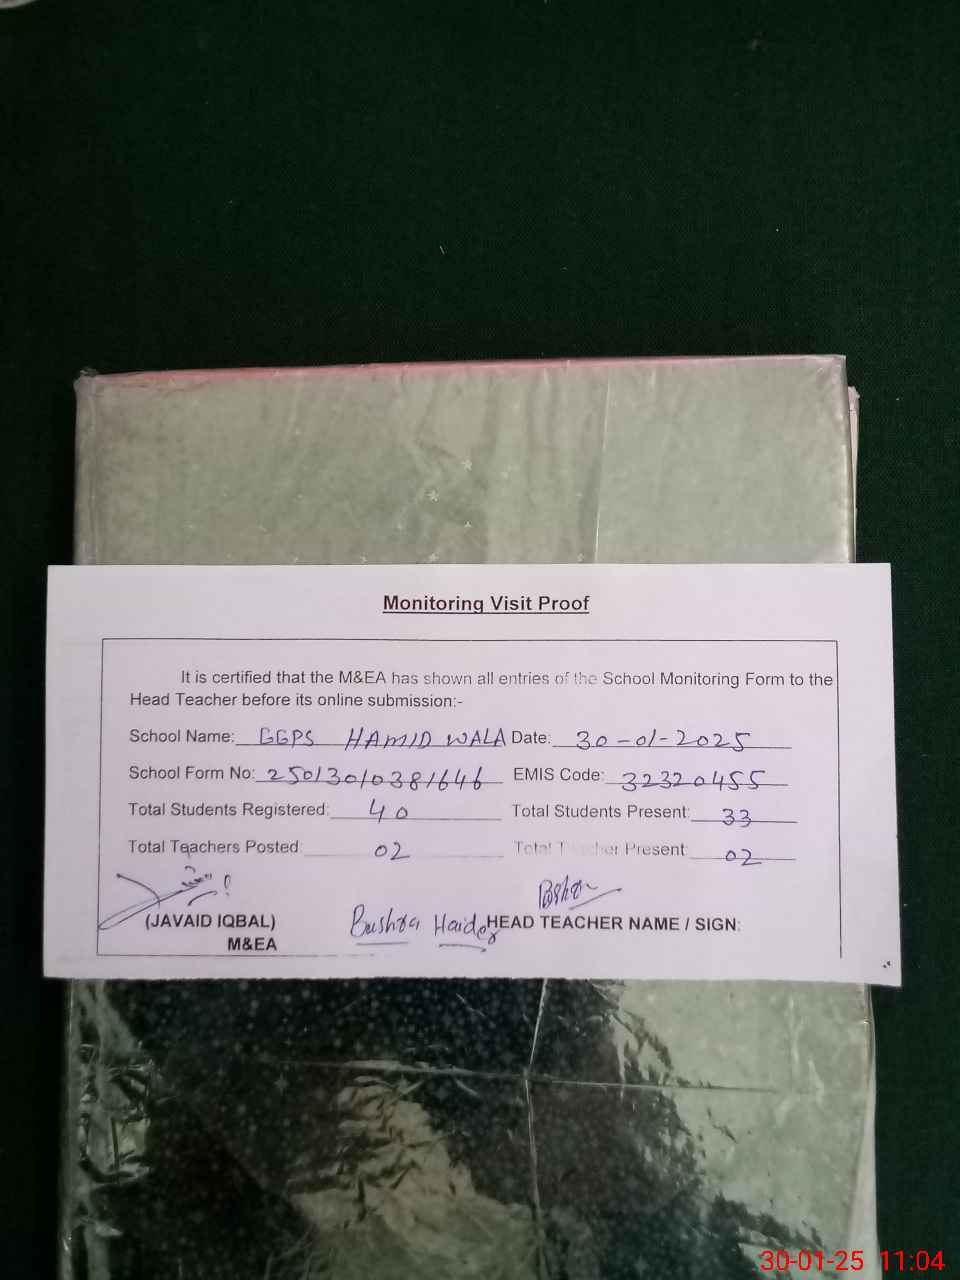 Monitoring Visit Proof
It is certified that the M&EA has shown all entries of the School Monitoring Form to the
Head Teacher before its online submission:-
School Name: GGPS HAMID WALA Date: 30-01-2025
School Form No: 25013010381646 EMIS Code: 32320455
Total Students Registered: 40 Total Students Present: 33
Total Teachers Posted: 02 Total Teacher Present: 02
(JAVAID IQBAL) Bushra Haider HEAD TEACHER NAME / SIGN:
M&EA
30-01-25 11:04